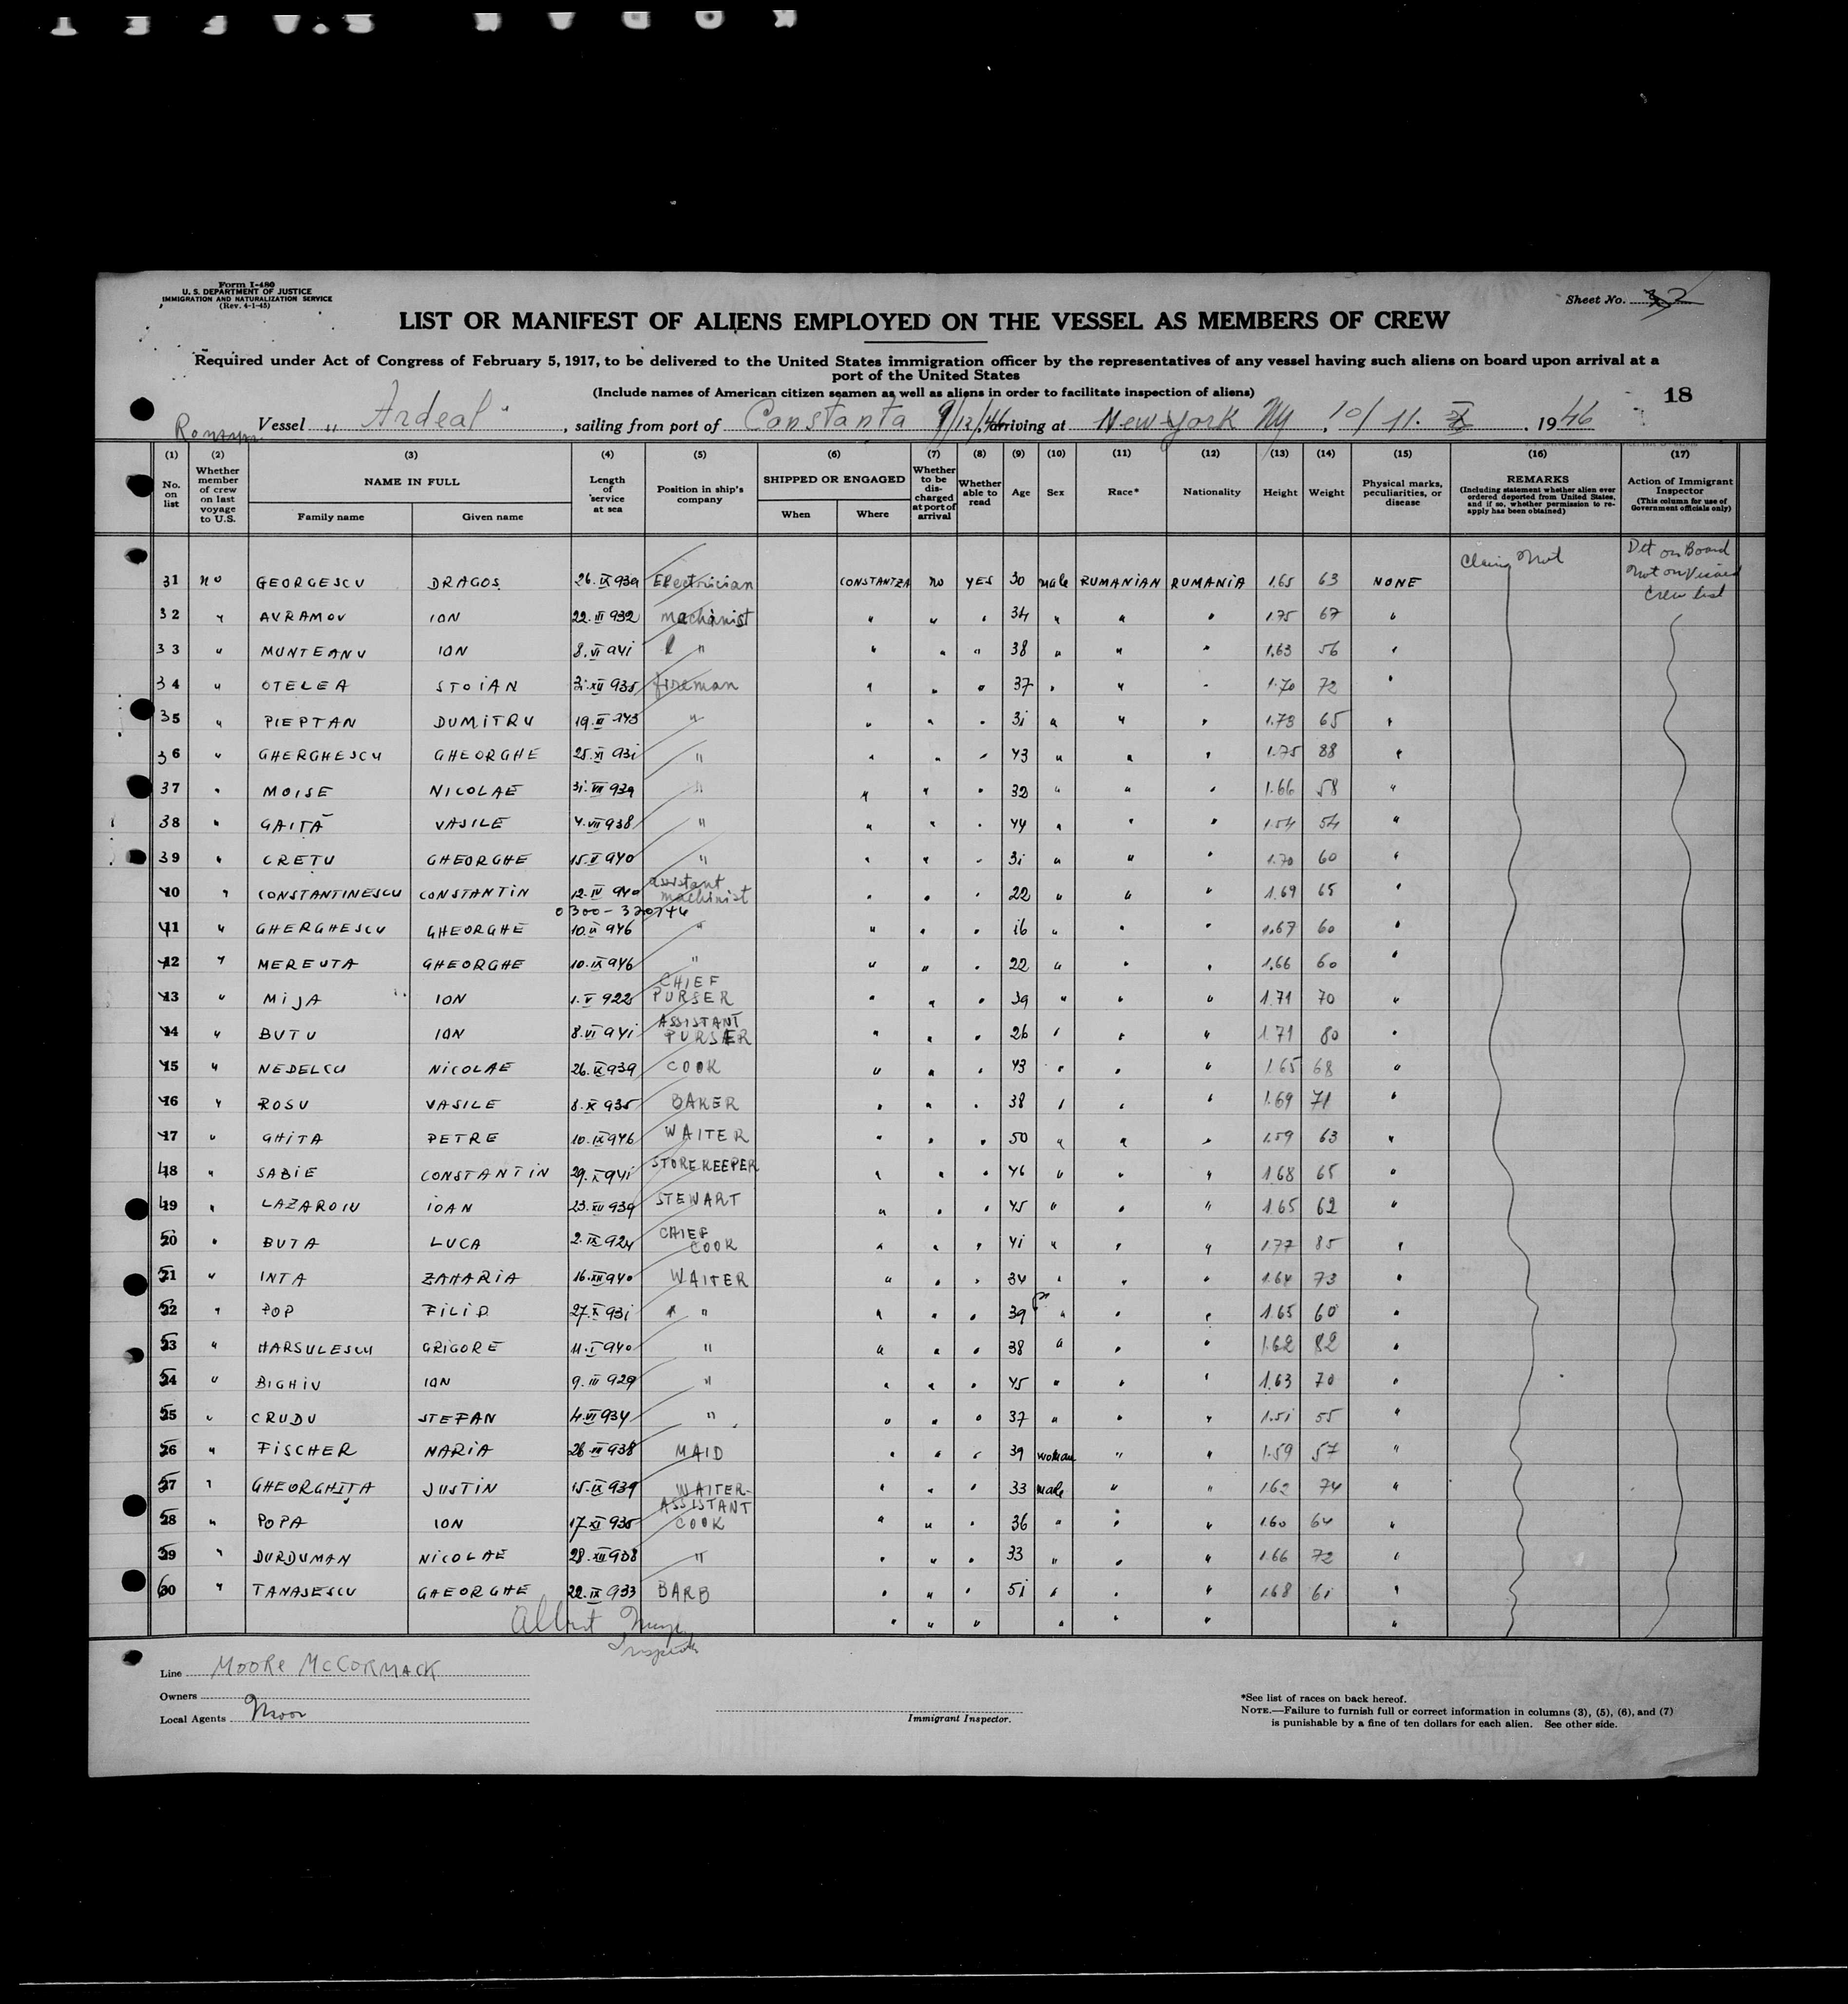 Form I-480
U. S. DEPARTMENT OF JUSTICE
IMMIGRATION AND NATURALIZATION SERVICE
(Rev. 4-1-45)
Sheet No. 2
LIST OR MANIFEST OF ALIENS EMPLOYED ON THE VESSEL AS MEMBERS OF CREW
Required under Act of Congress of February 5, 1917, to be delivered to the United States immigration officer by the representatives of any vessel having such aliens on board upon arrival at a
port of the United States
(Include names of American citizen seamen as well as aliens in order to facilitate inspection of aliens)
18
Vessel „ Ardeal " , sailing from port of Constanta 9/12/46 arriving at New York Ny 10/11. , 1946
(1) (2) (3) (4) (5) (6) (7) (8) (9) (10) (11) (12) (13) (14) (15) (16) (17)
No. on list
Whether member of crew on last voyage to U.S.
NAME IN FULL
Family name
Given name
Length of service at sea
Position in ship's company
SHIPPED OR ENGAGED
When
Where
Whether to be discharged at port of arrival
Whether able to read
Age
Sex
Race*
Nationality
Height
Weight
Physical marks, peculiarities, or disease
REMARKS
(Including statement whether alien ever ordered deported from United States, and if so, whether permission to reapply has been obtained)
Action of Immigrant Inspector
(This column for use of Government officials only)
Det on Board
Not on Visaed
Crew list
31 no GEORGESCU DRAGOS 26.IX 939 Electrician CONSTANTZA no YES 30 male RUMANIAN RUMANIA 1.65 63 NONE
32 " AVRAMOV ION 22.III 932 machinist " " " 34 " " " 1.75 67 "
33 " MUNTEANU ION 8.VI 941 " " " " 38 " " " 1.63 56 "
34 " OTELEA STOIAN XII 935 fireman " " " 37 " " " 1.70 72 "
35 " PIEPTAN DUMITRU 19.II 943 " " " " 31 " " " 1.73 65 "
36 " GHERGHESCU GHEORGHE 25.XI 931 " " " " 43 " " " 1.75 88 "
37 " MOISE NICOLAE 31.VII 939 " " " " 32 " " " 1.66 58 "
38 " GAITĂ VASILE 4.VII 938 " " " " 44 " " " 1.54 54 "
39 " CRETU GHEORGHE 15.V 940 " " " " 31 " " " 1.70 60 "
40 " CONSTANTINESCU CONSTANTIN 12.IV 940 assistant machinist " " " 22 " " " 1.69 65 "
0300-320746
41 " GHERGHESCU GHEORGHE 10. 946 " " " " 16 " " " 1.67 60 "
42 " MEREUTA GHEORGHE 10.IX 946 " " " " 22 " " " 1.66 60 "
43 " MIJA ION 1.V 922 CHIEF PURSER " " " 39 " " " 1.71 70 "
44 " BUTU ION 8.VI 941 ASSISTANT PURSER " " " 26 " " " 1.71 80 "
45 " NEDELCU NICOLAE 26.IX 939 COOK " " " 43 " " " 1.65 68 "
46 " ROSU VASILE 8.X 935 BAKER " " " 38 " " " 1.69 71 "
47 " GHITA PETRE 10.IX 946 WAITER " " " 50 " " " 1.59 63 "
48 " SABIE CONSTANTIN 29.X 941 STOREKEEPER " " " 46 " " " 1.68 65 "
49 " LAZAROIU IOAN 23.XII 939 STEWART " " " 45 " " " 1.65 62 "
50 " BUTA LUCA 2.IX 924 CHIEF COOK " " " 41 " " " 1.77 85 "
51 " INTA ZAHARIA 16.XII 940 WAITER " " " 34 " " " 1.64 73 "
52 " POP FILIP 27.X 931 " " " " 39 " " " 1.65 60 "
53 " HARSULESCU GRIGORE 11.I 940 " " " " 38 " " " 1.62 82 "
54 " BIGHIU ION 9.III 929 " " " " 45 " " " 1.63 70 "
55 " CRUDU STEFAN 4.VI 934 " " " " 37 " " " 1.51 55 "
56 " FISCHER MARIA 26.III 938 MAID " " " 39 woman " " 1.59 57 "
57 " GHEORGHITA JUSTIN 15.IX 939 WAITER " " " 33 male " " 1.62 74 "
58 " POPA ION 17.XI 935 ASSISTANT COOK " " " 36 " " " 1.60 64 "
59 " DURDUMAN NICOLAE 28.XII 938 " " " " 33 " " " 1.66 72 "
60 " TANASESCU GHEORGHE 22.IX 933 BARB " " " 51 " " " 1.68 61 "
Albert
Inspector
Line MOORE McCORMACK
Owners
Local Agents Moor
Immigrant Inspector.
*See list of races on back hereof.
NOTE.—Failure to furnish full or correct information in columns (3), (5), (6), and (7)
is punishable by a fine of ten dollars for each alien. See other side.